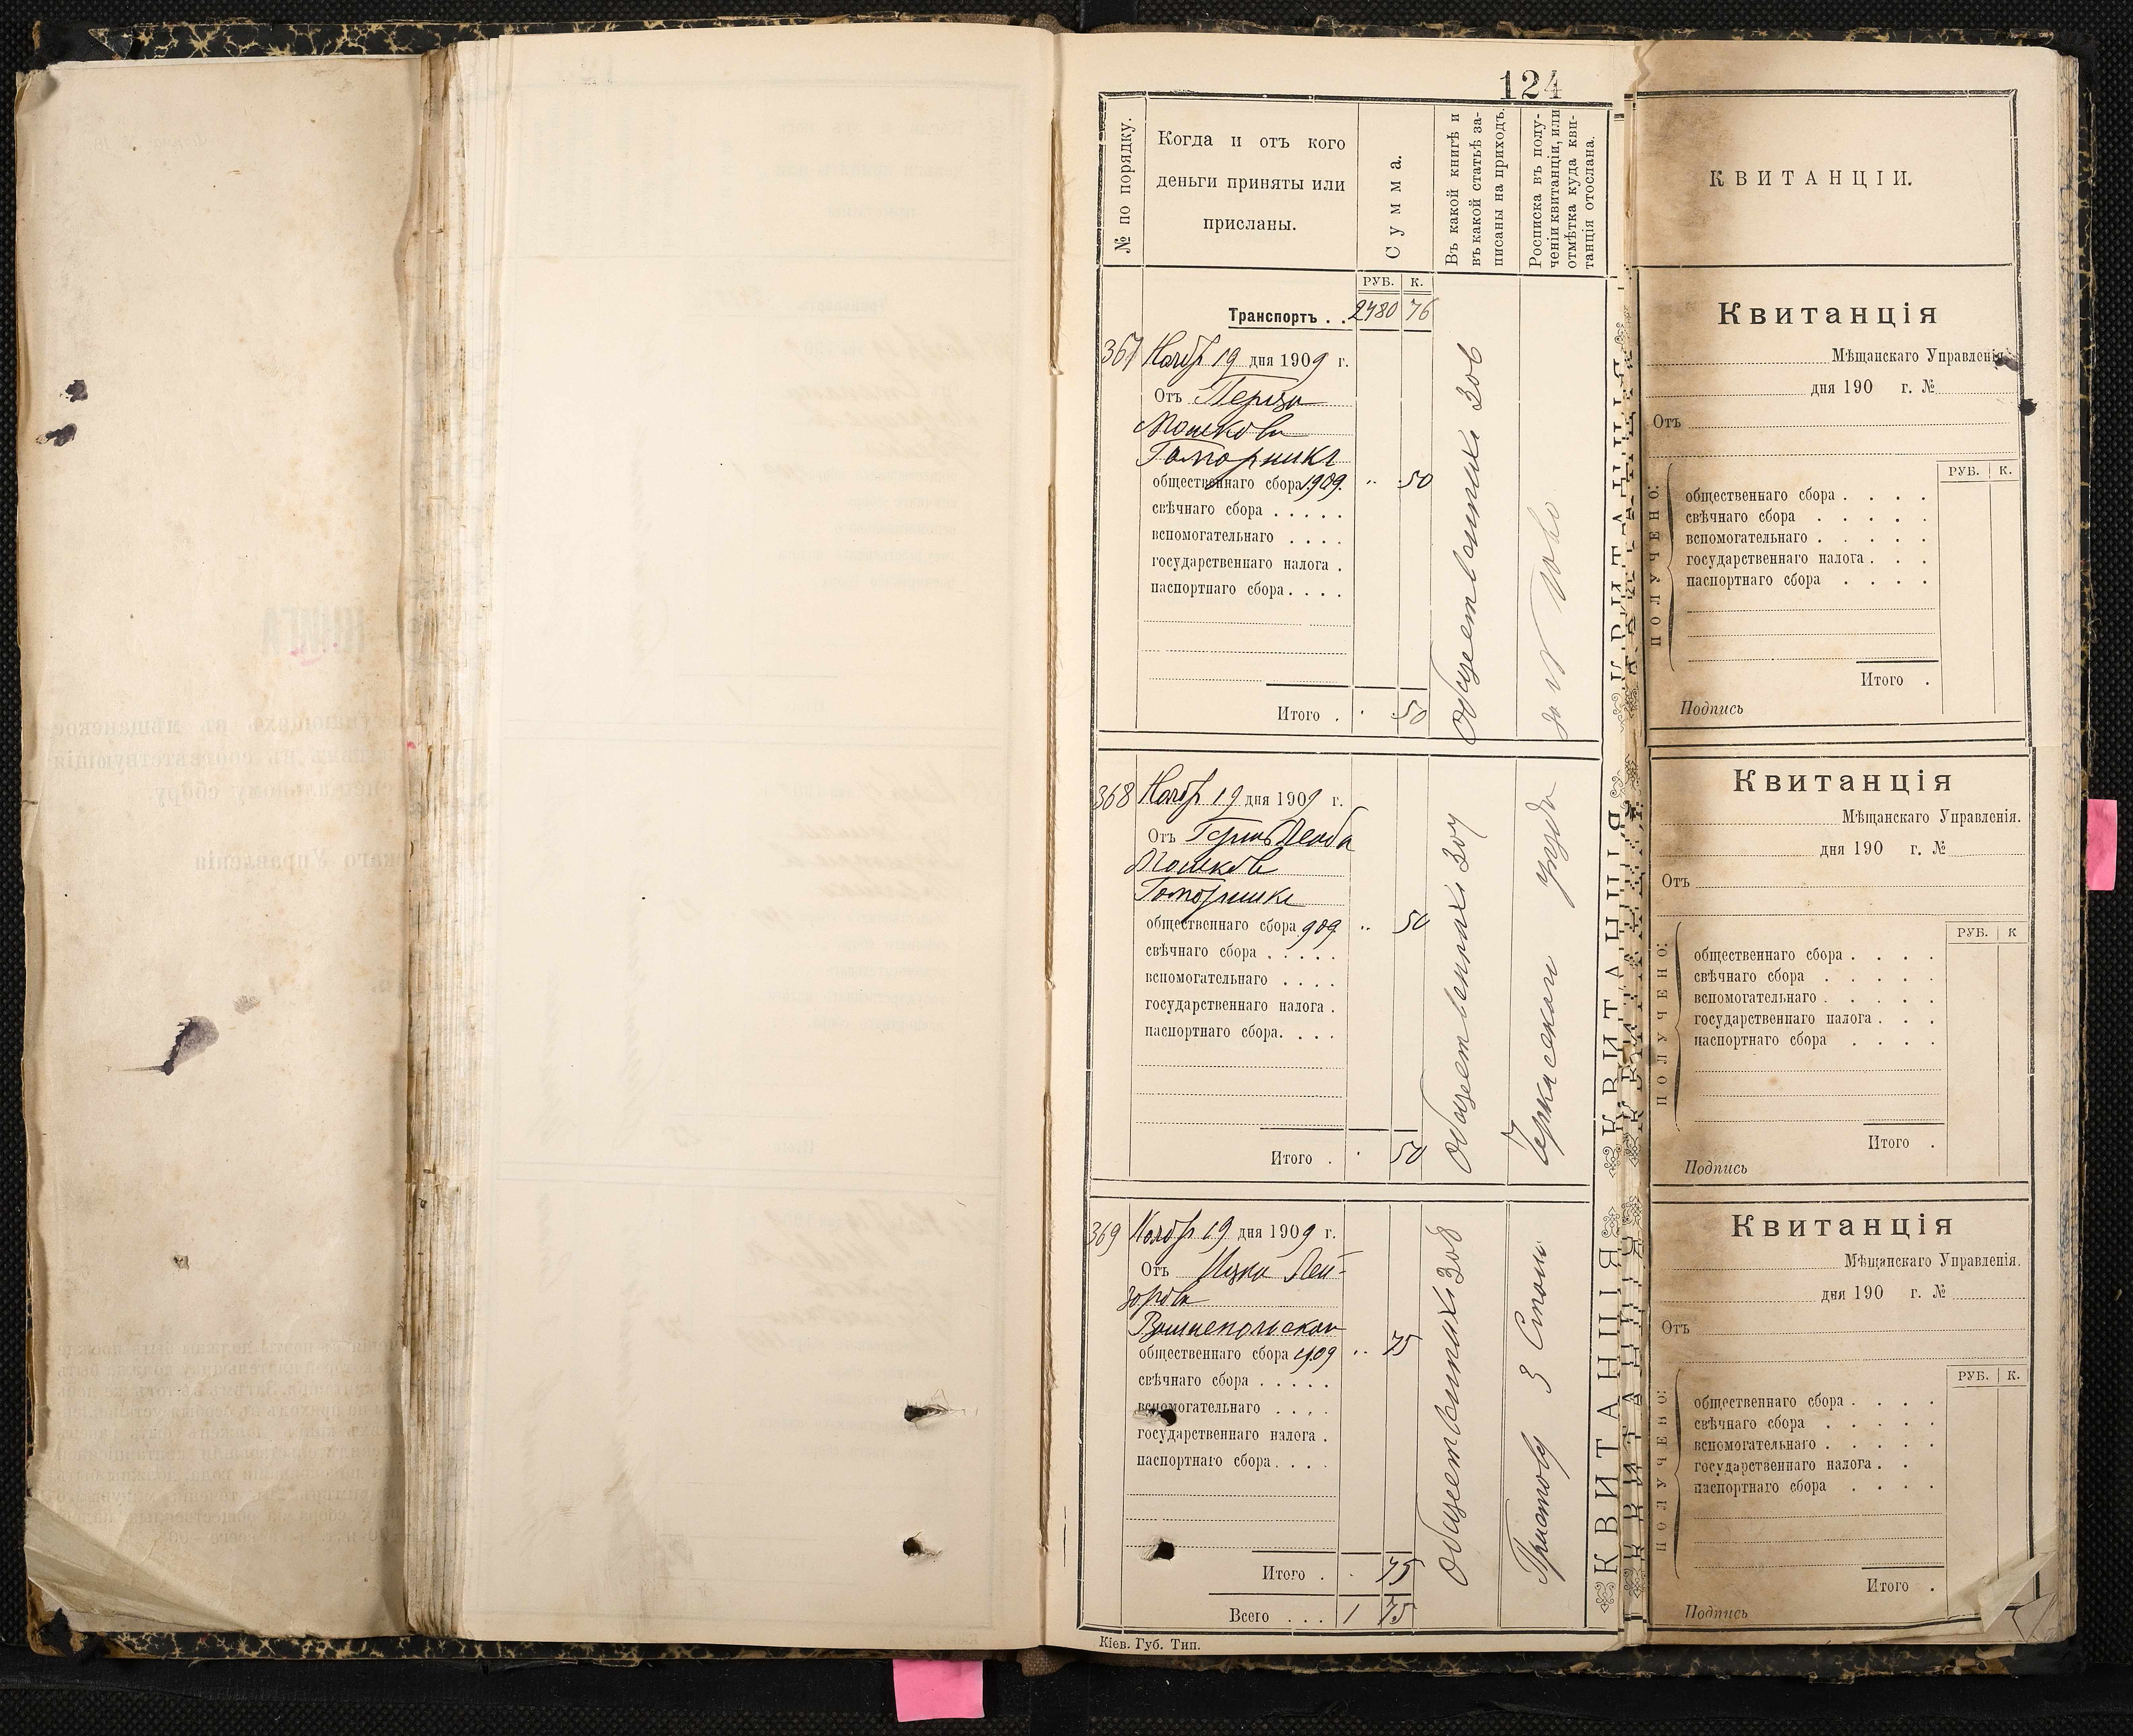 124
№ по порядку.
Когда и отъ кого
деньги приняты или
присланы.
Сумма.
Въ какой книгѣ и
въ какой статьѣ за-
писаны на приходъ.
Росписка въ полу-
ченіи квитанціи, или
отмѣтка куда кви-
танція отослана.
РУБ. К.
Транспортъ . . 2480 76
367 Ноябр 19 дня 1909 г.
Отъ
Мошкова
общественнаго сбора 1909. " 50
свѣчнаго сбора . . . . .
вспомогательнаго . . . .
государственнаго налога .
паспортнаго сбора . . . .
Итого . . 50
общественныхъ 306
368 Ноябр 19 дня 1909 г.
Отъ
Мошкова
общественнаго сбора 909 " 50
свѣчнаго сбора . . . . .
вспомогательнаго . . . .
государственнаго налога .
паспортнаго сбора. . . .
Итого . . 50
общественныхъ 307
369 Ноябр 19 дня 1909 г.
Отъ Ицка Лей-
зорова
общественнаго сбора 909 " 75
свѣчнаго сбора . . . . .
вспомогательнаго . . . .
государственнаго налога .
паспортнаго сбора. . . .
Итого . . 75
Всего . . . 1 75
общественныхъ 308
Приставу 3 Стана
Черкасскаго уѣзда
Кіев. Губ. Тип.
КВИТАНЦІЯ КВИТАНЦІЯ
КВИТАНЦІИ.
Квитанція
Мѣщанскаго Управленія
дня 190 г. №
Отъ
РУБ. К.
ПОЛУЧЕНО:
общественнаго сбора . . . .
свѣчнаго сбора . . . . .
вспомогательнаго . . . . .
государственнаго налога . . .
паспортнаго сбора . . . .
Итого .
Подпись
Квитанція
Мѣщанскаго Управленія.
дня 190 г. №
Отъ
РУБ. К
ПОЛУЧЕНО:
общественнаго сбора . . . .
свѣчнаго сбора . . . . .
вспомогательнаго . . . . .
государственнаго налога . . .
паспортнаго сбора . . . .
Итого .
Подпись
Квитанція
Мѣщанскаго Управленія.
дня 190 г. №
Отъ
РУБ. К.
ПОЛУЧЕНО:
общественнаго сбора . . . .
свѣчнаго сбора . . . . .
вспомогательнаго . . . . .
государственнаго налога . .
паспортнаго сбора . . . .
Итого .
Подпись